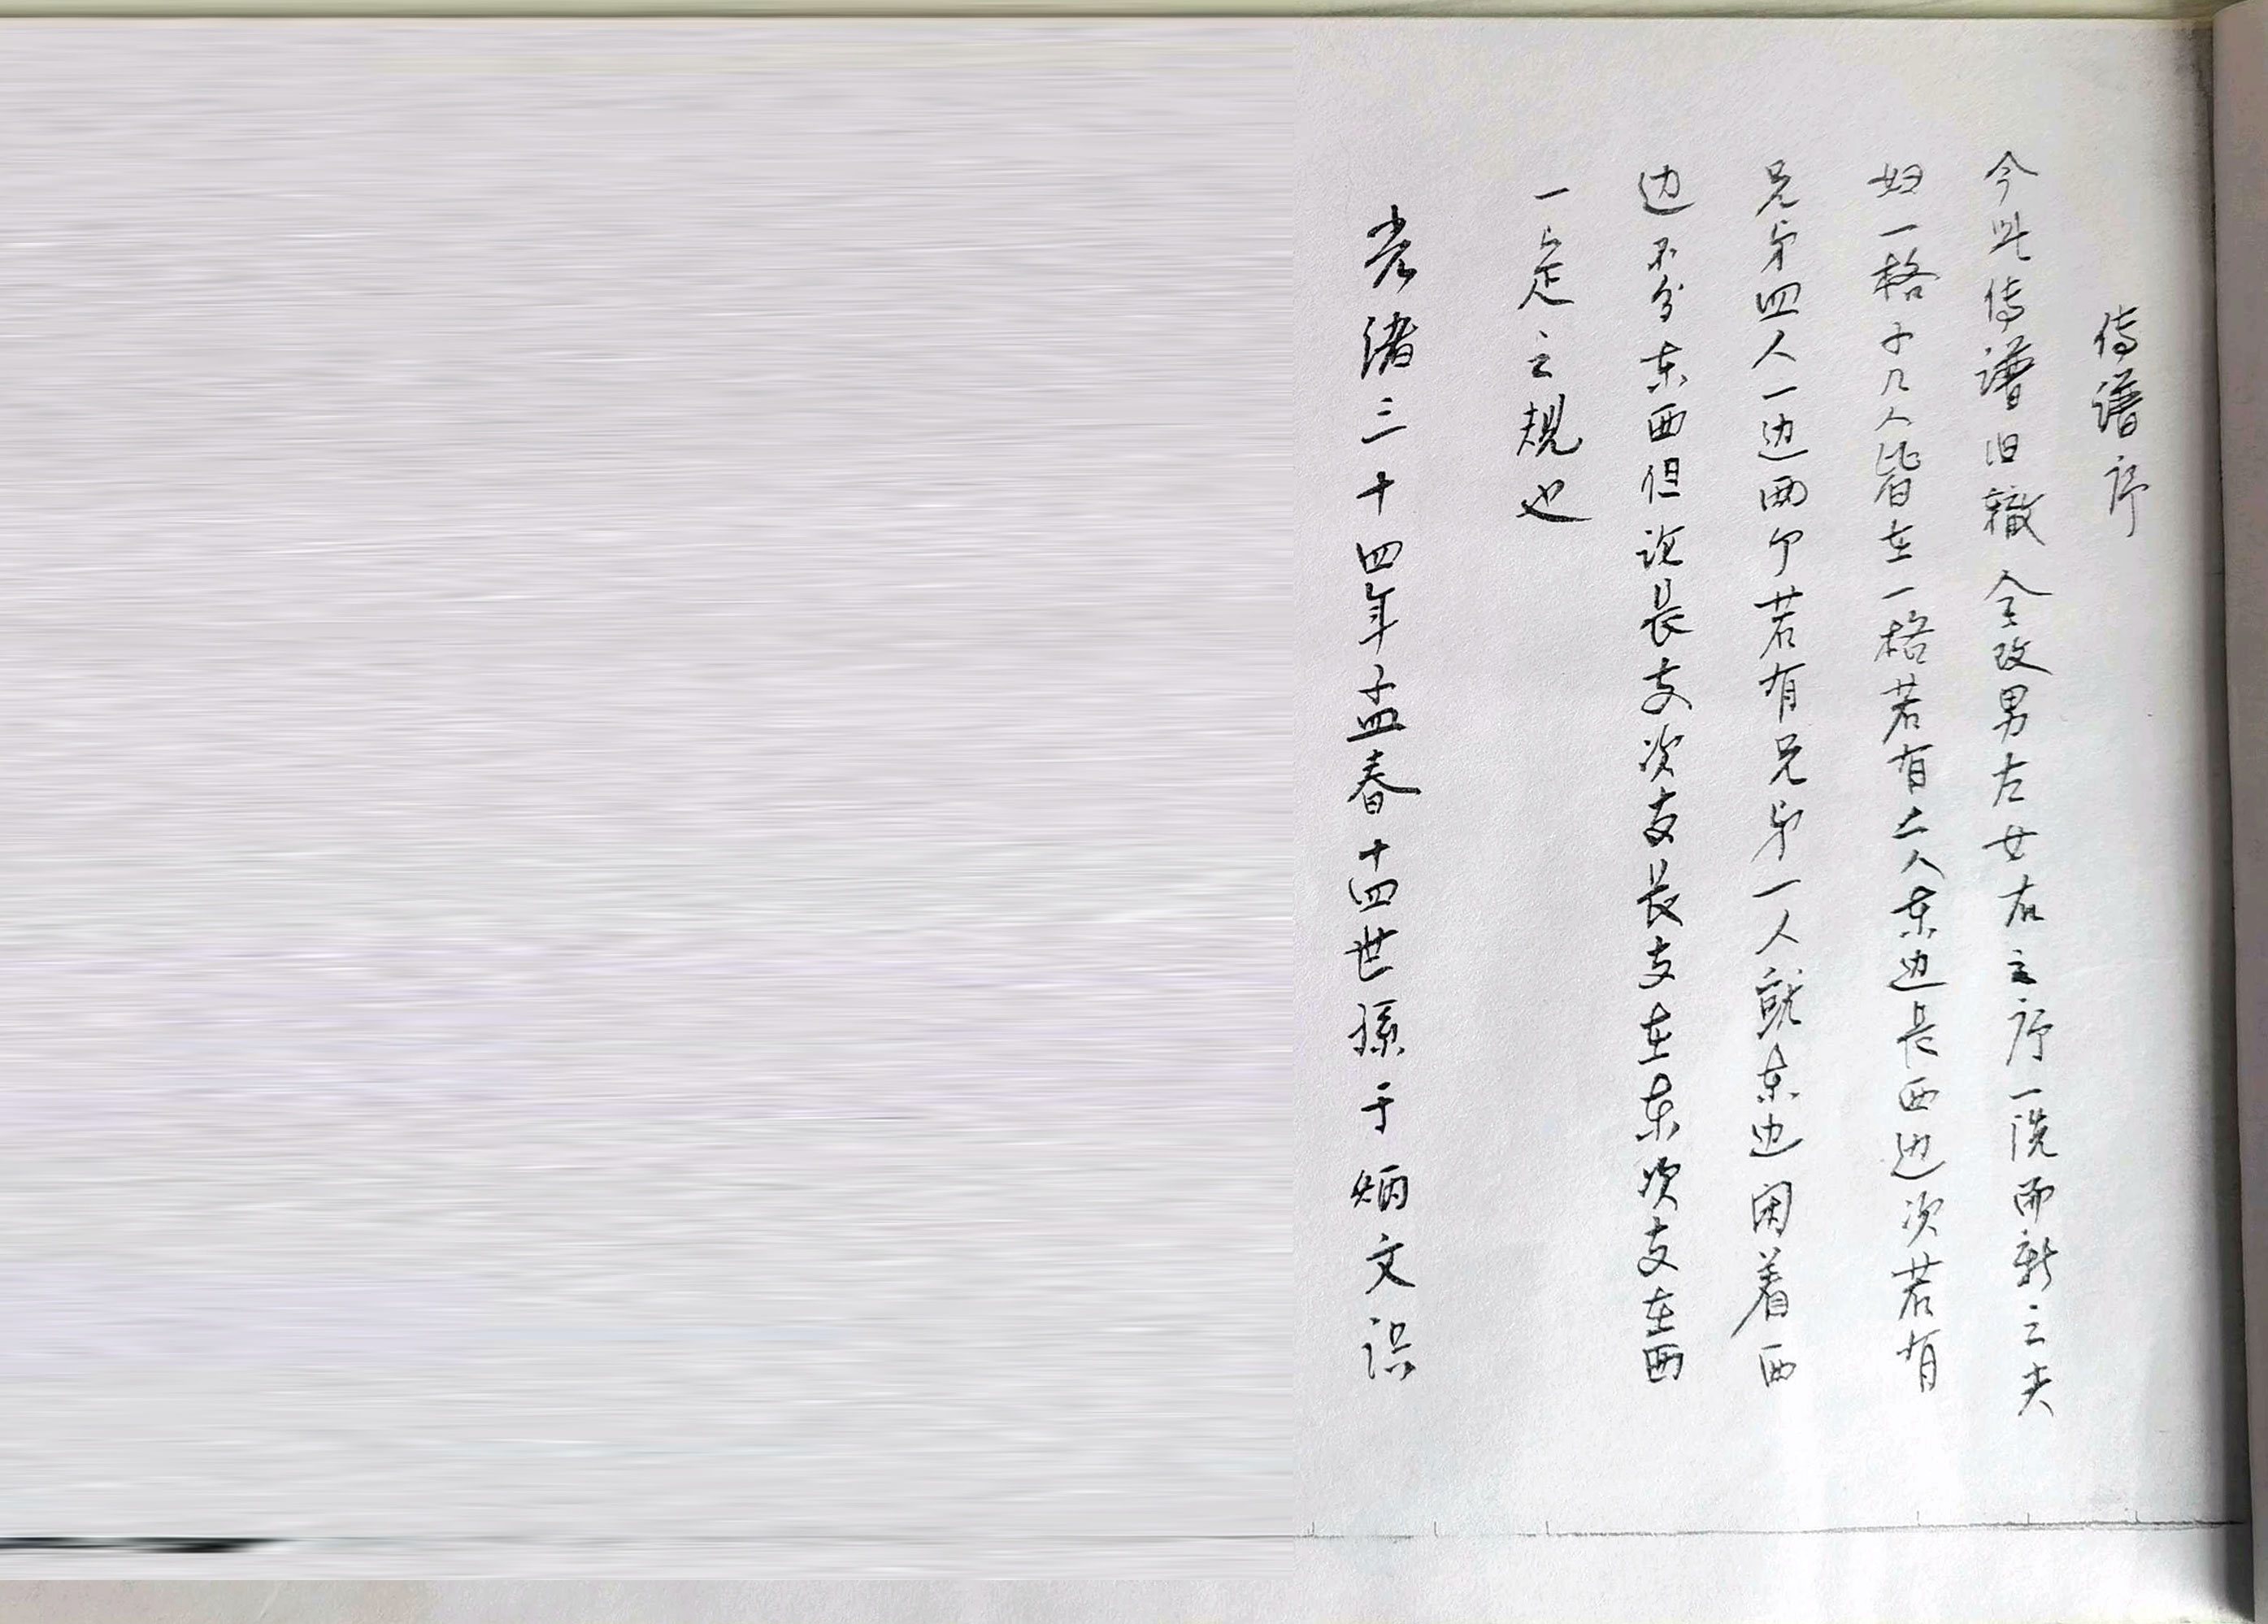 传谱序
今此传谱旧辙全改男左女右之序一洗而新之夫
妇一格子几人皆在一格若有二人东边长西边次若有
兄弟四人一边两个若有兄弟一人就东边闲着西
边不分东西但论长支次支长支在东次支在西
一定之规也
光绪三十四年孟春十四世孫于炳文识